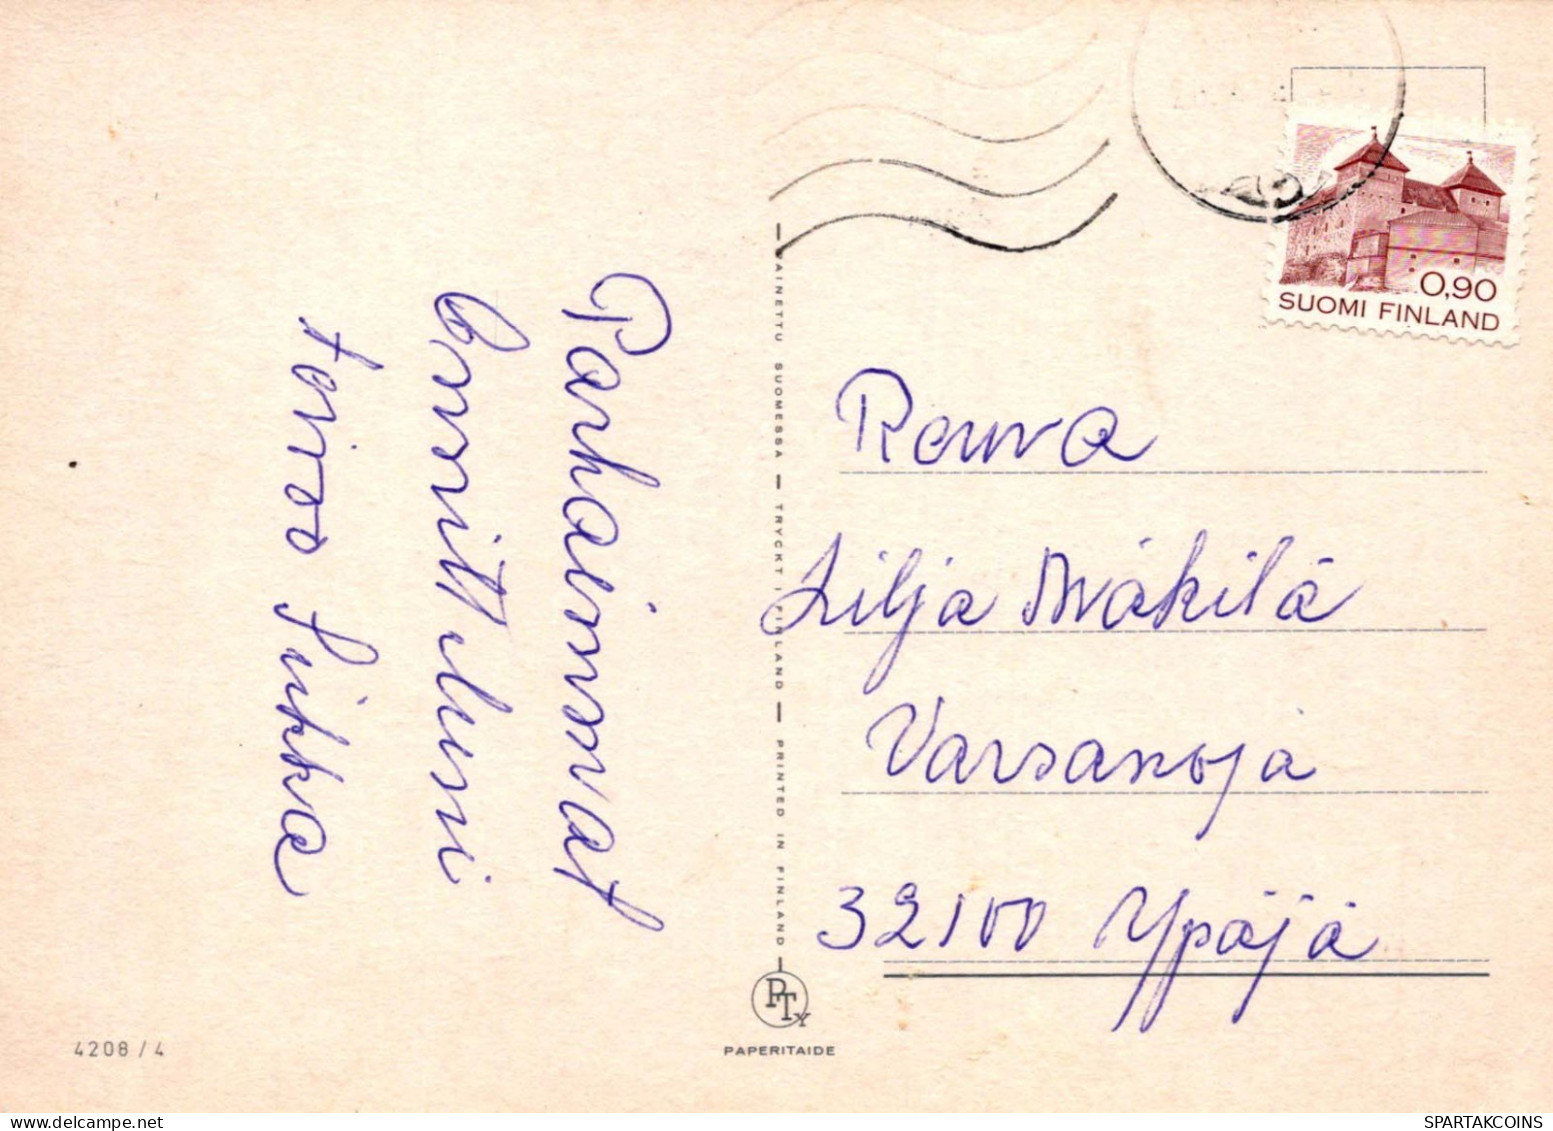 Parhaimmat
Onnittelumi
toivoo Sirkka
0,90
SUOMI FINLAND
Rouva
Lilja Mäkilä
Varsanoja
32100 Ypäjä
PAINETTU SUOMESSA — TRYCKT I FINLAND — PRINTED IN FINLAND
PTY
PAPERITAIDE
4208 / 4
SPARTAKCOINS